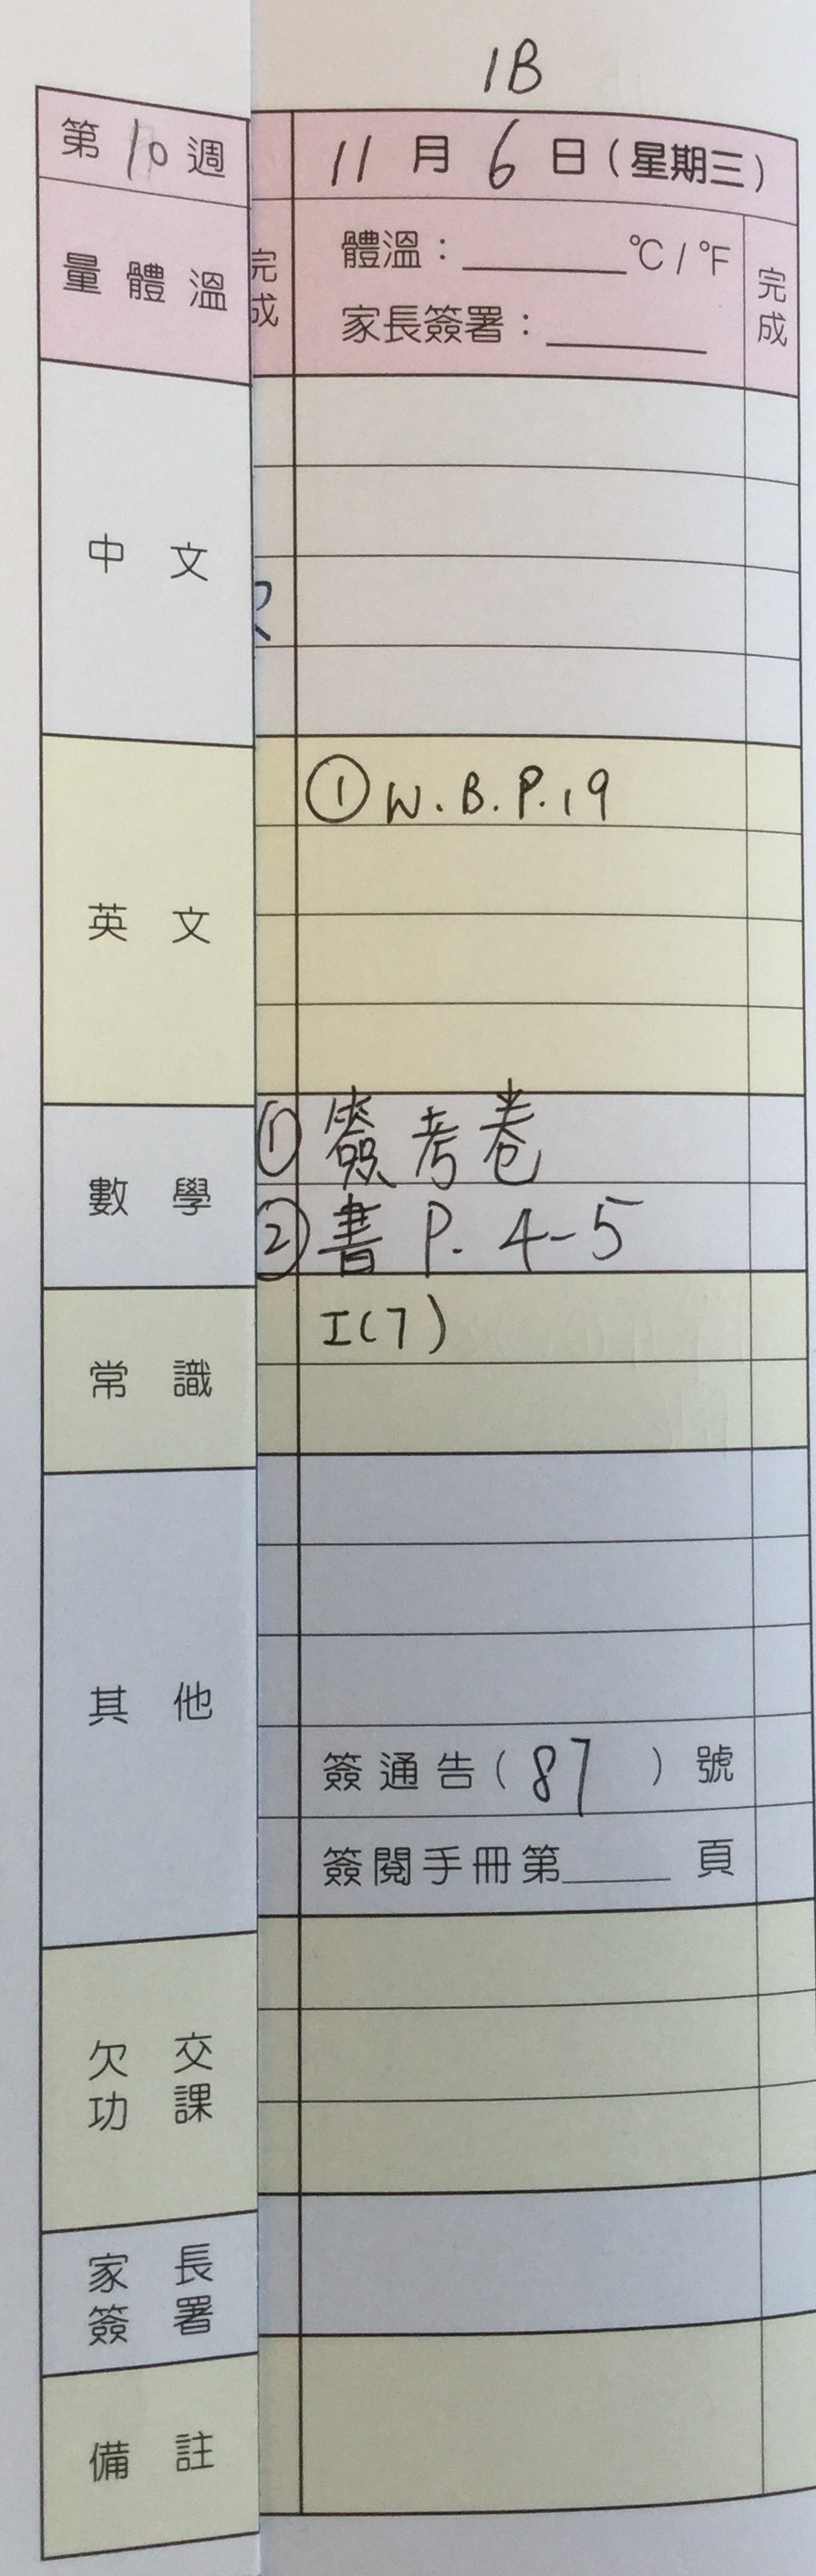 1B
第10週
11月6日(星期三)
量體溫
完成
體溫：______℃/℉
家長簽署：______
完成
中文
英文
① W.B.P.19
數學
① 簽考卷
② 書 P. 4-5
常識
I(7)
其他
簽通告(87)號
簽閱手冊第____頁
欠交功課
家長簽署
備註